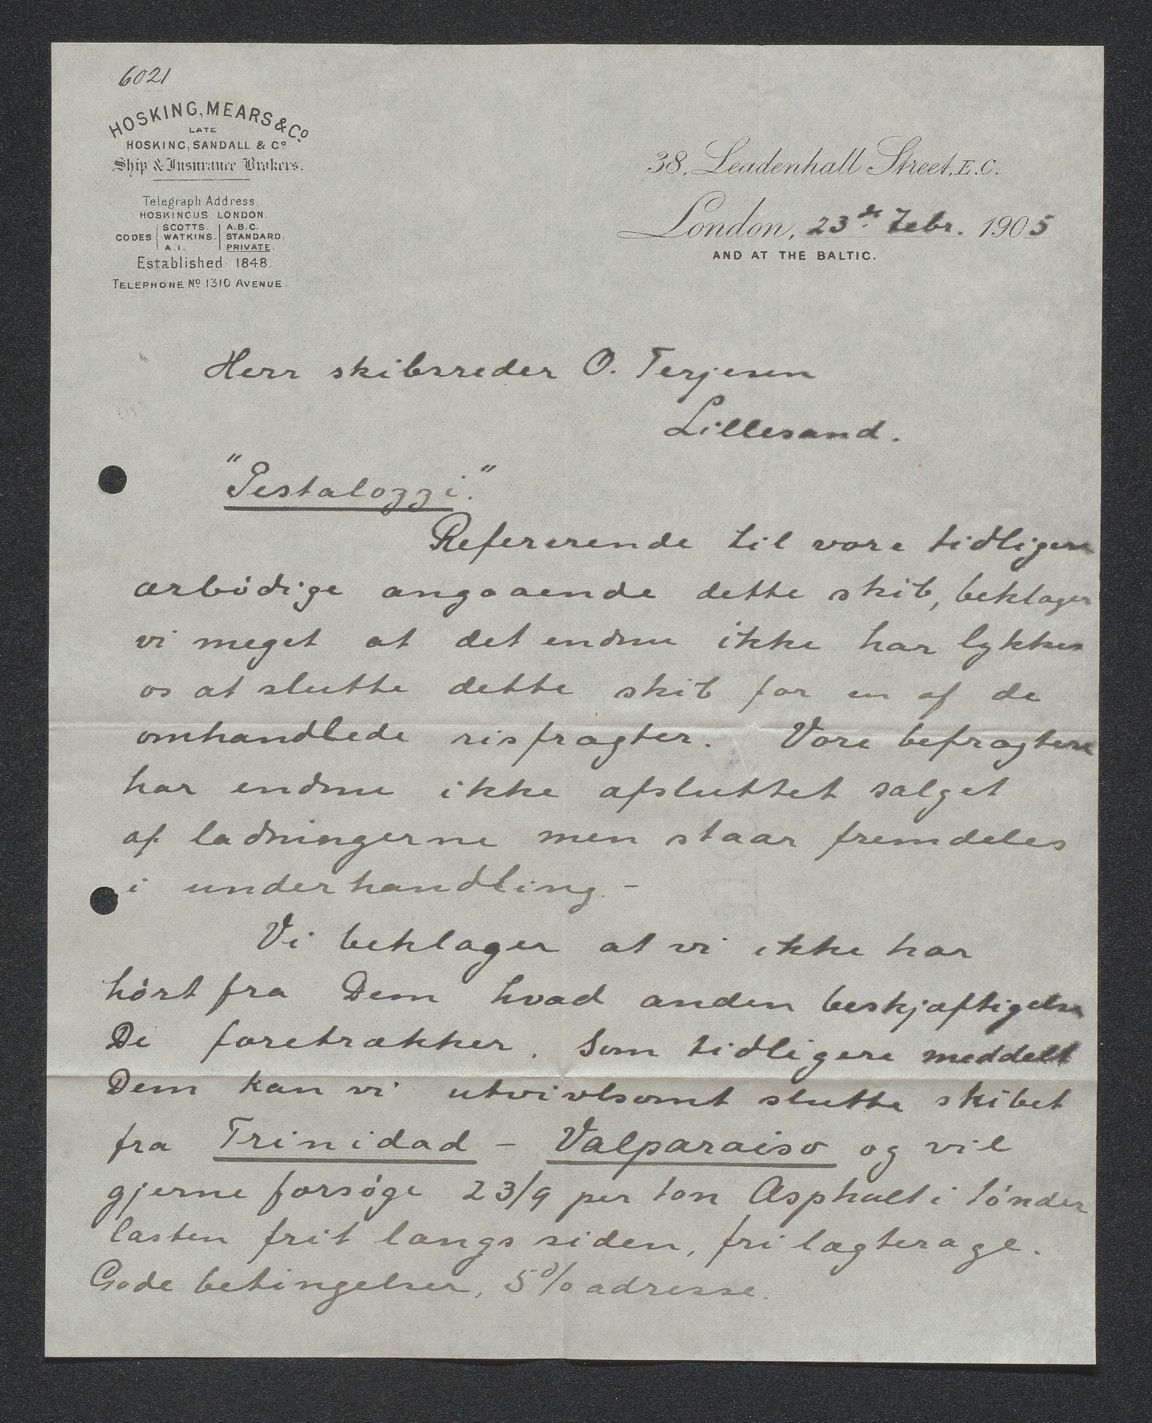 6021
HOSKING, MEARS & Co.
LATE
HOSKING, SANDALL & Co.
Ship & Insurance Brokers.
Telegraph Address,
HOSKINGUS LONDON.
CODES SCOTTS. A.B.C.
WATKINS. STANDARD.
A.I. PRIVATE.
Established 1848.
TELEPHONE No 1310 AVENUE.
38, Leadenhall Street, E.C.
London, 23de Febr. 1905
AND AT THE BALTIC.
Herr skibsreder O. Terjesen
Lillesand.
"Pestalozzi."
Refererende til vore tidligere
ærbødige angaaende dette skib, beklager
vi meget at det endnu ikke har lykkes
os at slutte dette skib for en af de
omhandlede risfragter. Vore befragtere
har endnu ikke afsluttet salget
af ladningerne men staar fremdeles
i underhandling. -
Vi beklager at vi ikke har
hørt fra Dem hvad anden beskjæftigelse
De foretrækker. Som tidligere meddelt
Dem kan vi utvivlsomt slutte skibet
fra Trinidad - Valparaiso og vil
gjerne forsøge 23/9 per ton Asphalt i tønder
lasten frit langs siden, fri lægterage.
Gode betingelser, 5% adresse.